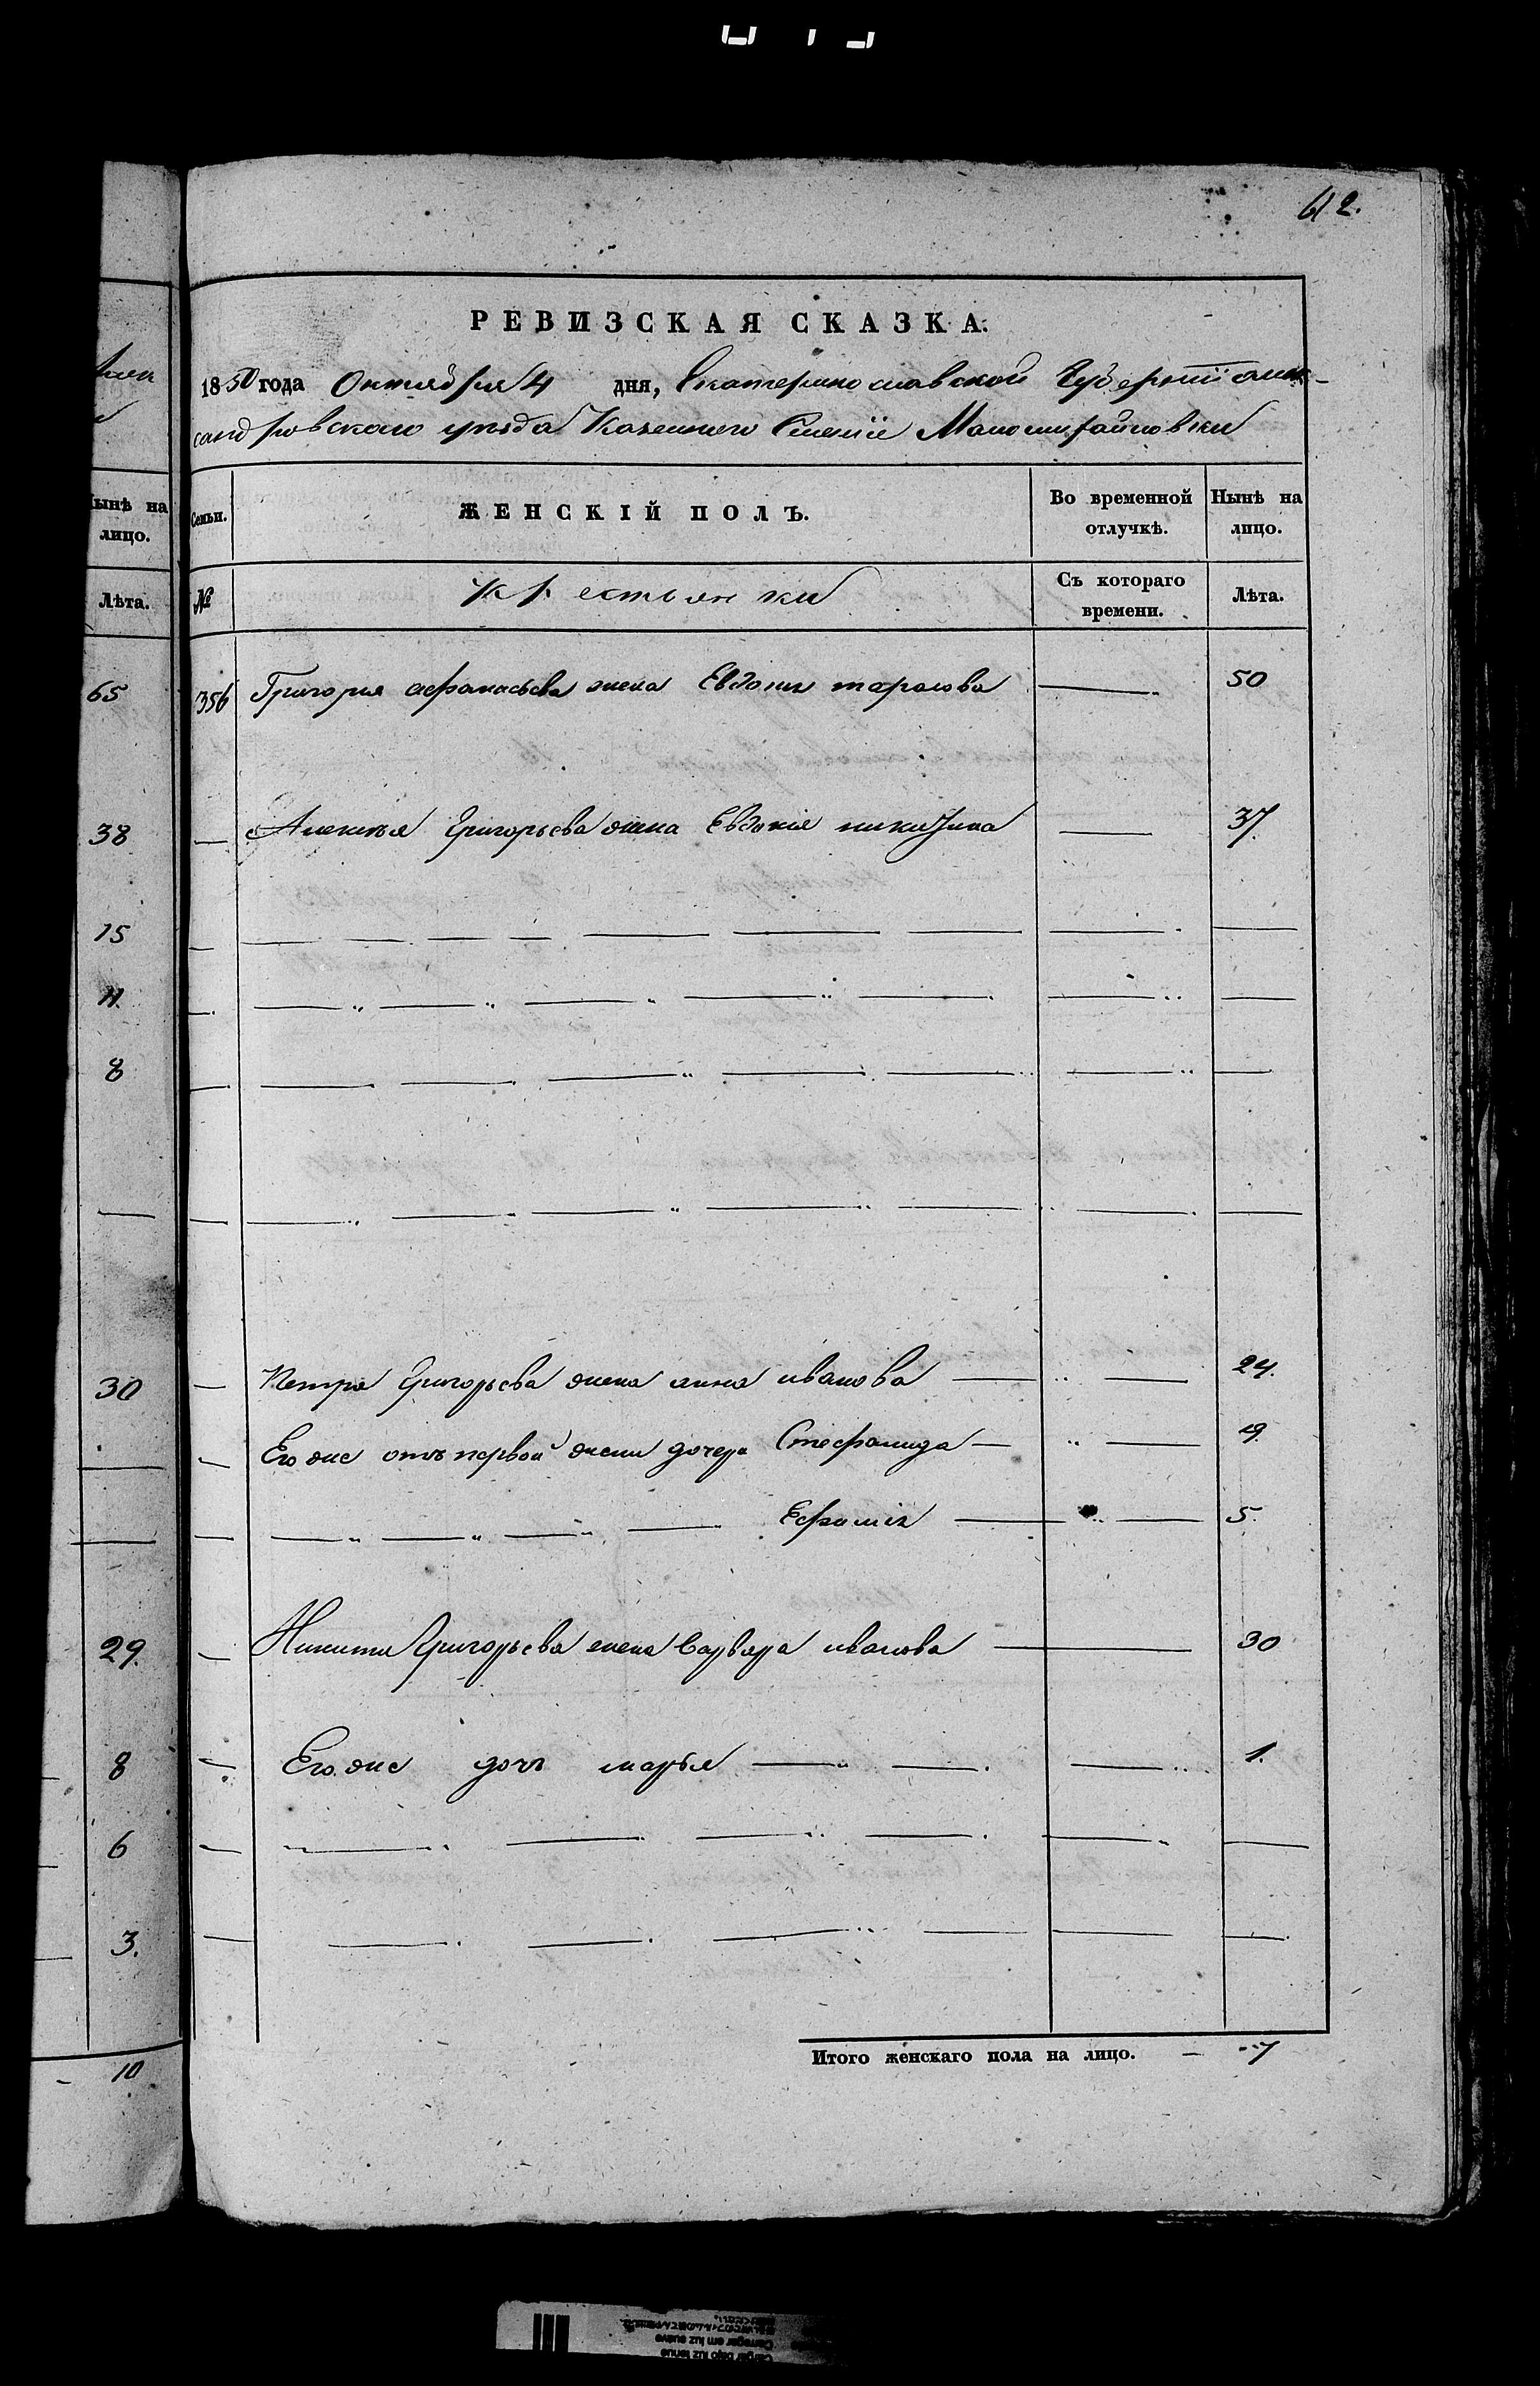 612.
РЕВИЗСКАЯ СКАЗКА.
1850 года Октября 4 дня, Екатеринославской Губернии алек-
сандровского уезда Казенного Селения Маломихайловки
Нынѣ на лицо.
Лѣта.
65
38
15
11.
8
30
29.
8
6
3.
10
Семьи. ЖЕНСКІЙ ПОЛЪ. Во временной отлучкѣ. Нынѣ на лицо.
№ Крестьянки Съ котораго времени. Лѣта.
356 Григорія афанасьева жена Евдокія тарасова 50
Алексѣя Григорьева жена Евдокія 37
Петра Григорьева жена анна иванова 24.
Его же отъ первой жены дочери Стефанида 9.
Ефимія 5.
Никиты Григорьева жена варвара иванова 30
Его же дочь марья 1.
Итого женскаго пола на лицо. 7